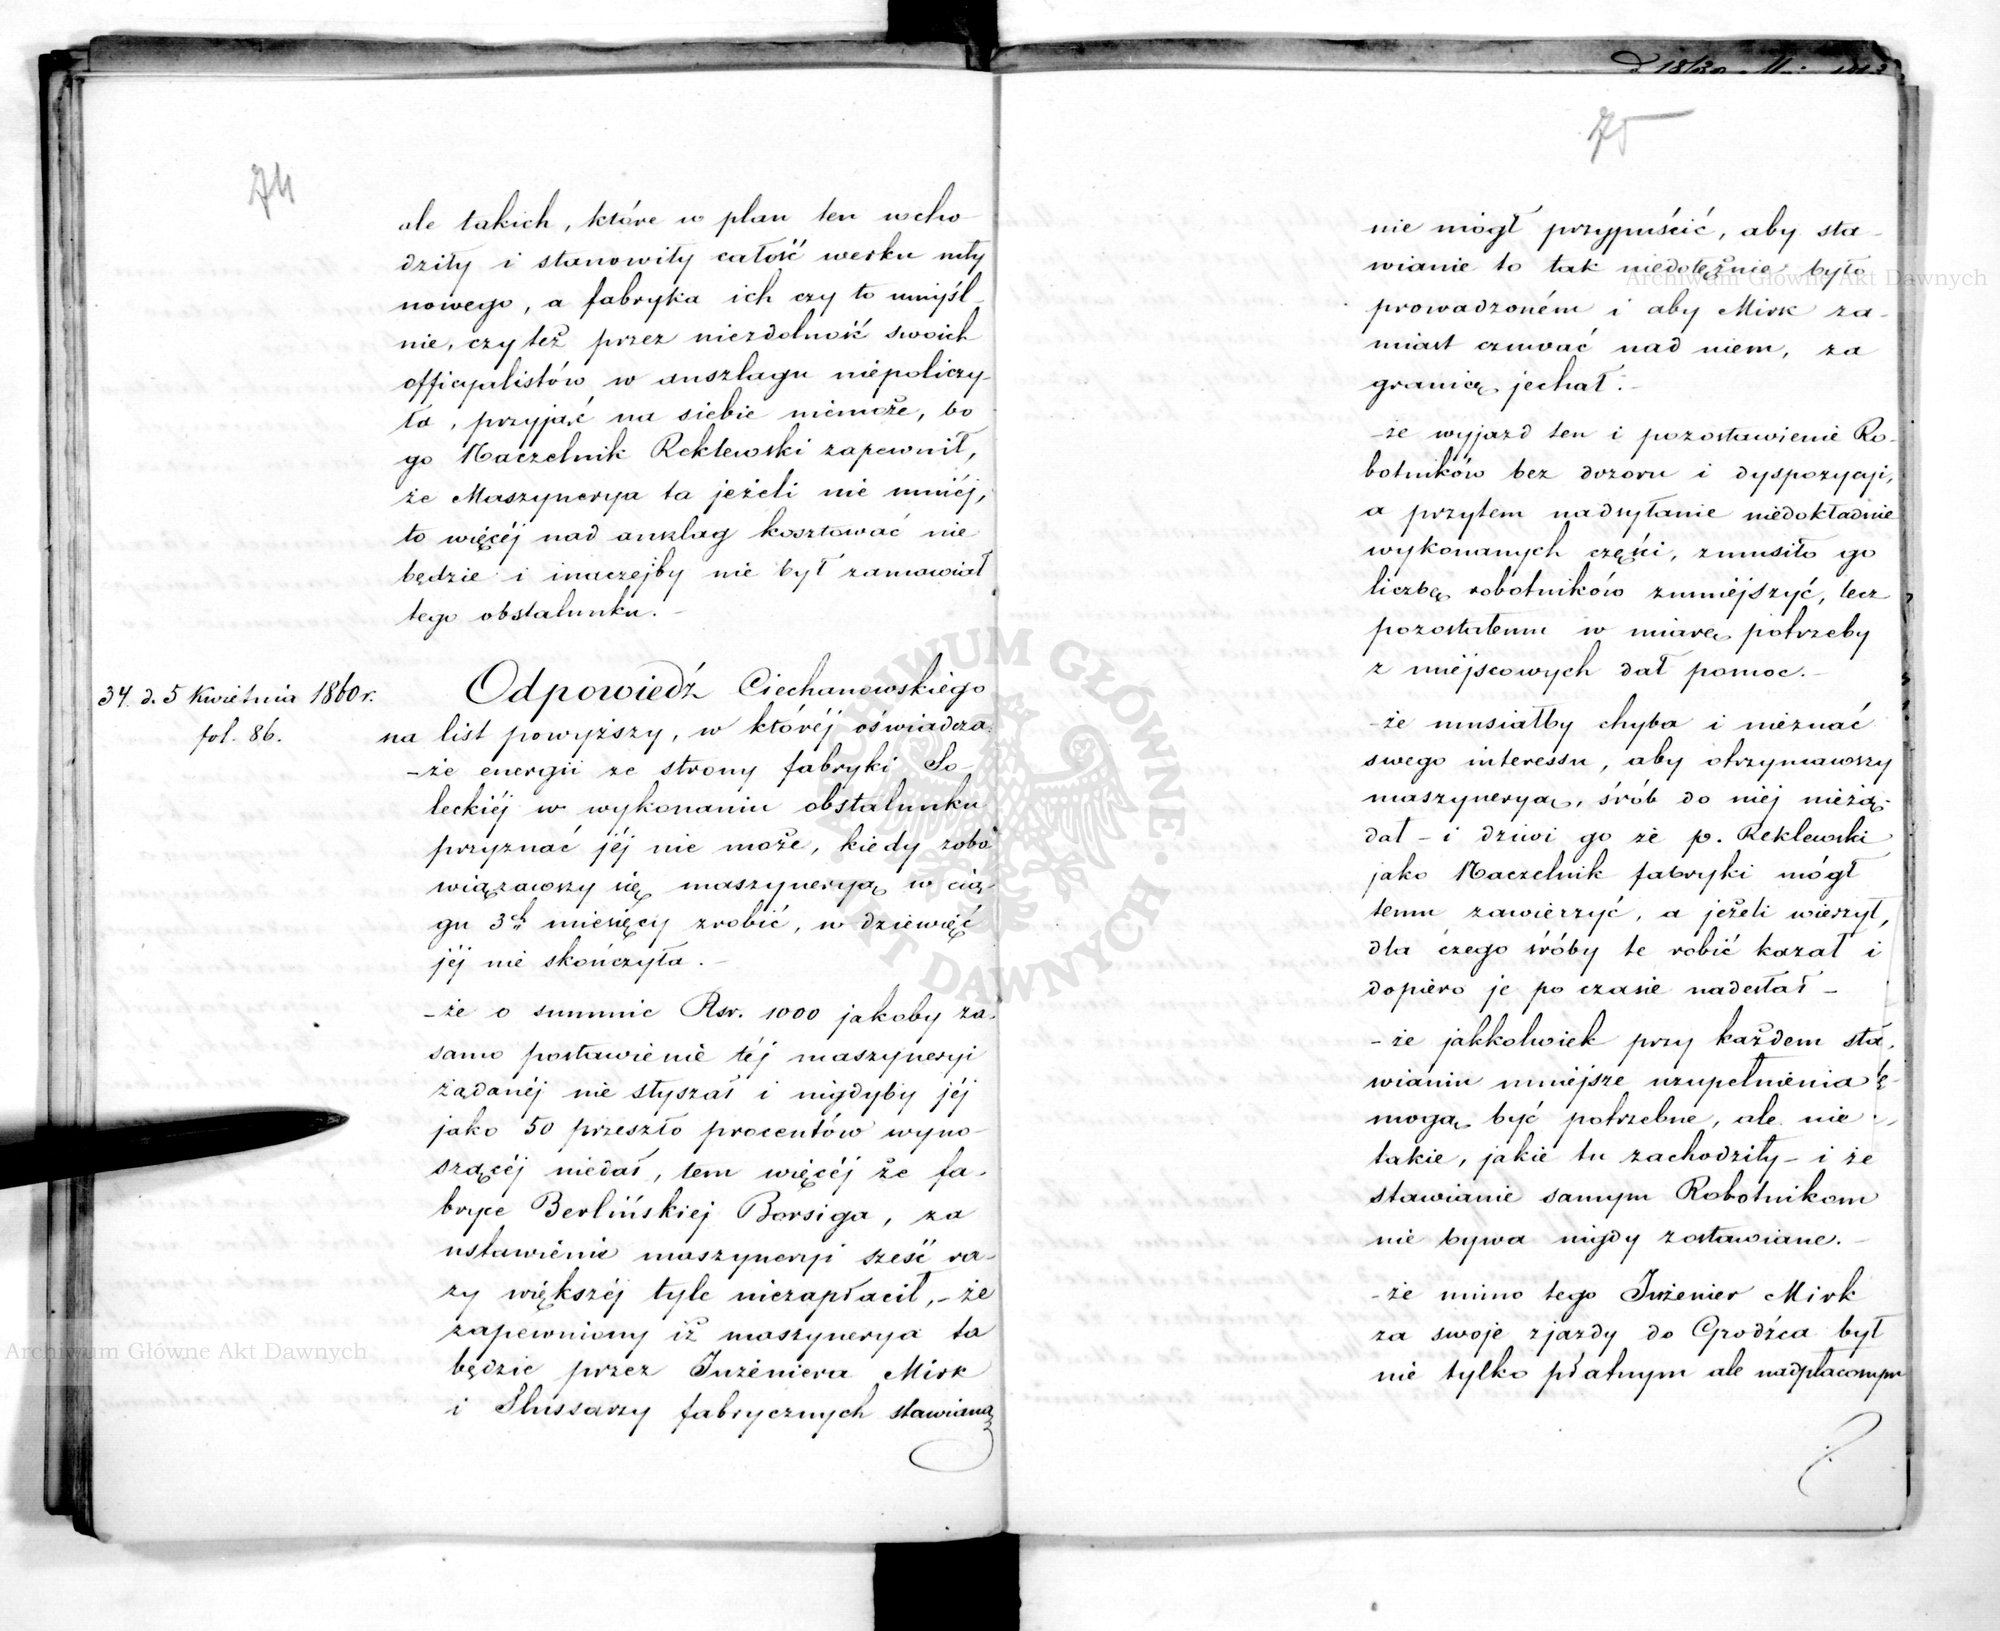 74
ale takich, które w plan ten wcho-
dziły i stanowiły całość werku mły
nowego, a fabryka ich czy to umyśl-
nie, czy też przez niezdolność swoich
officyalistów w anszlagu niepoliczy-
ła, przyjąć na siebie niemoże, bo
go Naczelnik Reklewski zapewnił,
że Maszynerya ta jeżeli nie mniéj,
to więcéj nad anszlag kosztować nie
będzie i inaczejby nie był zamawiał
tego obstalunku. -
34. d. 5 Kwietnia 1860 r.
fol. 86.
Odpowiedź Ciechanowskiego
na list powyższy, w któréj oświadcza:
- że energii ze strony fabryki So-
leckiéj w wykonaniu obstalunku
przyznać jéj nie może, kiedy zobo
wiązawszy się maszyneryą w cią-
gu 3ch miesięcy zrobić, w dziewięć
jéj nie skończyła. -
- że o summie Rsr. 1000 jakoby za
samo postawienie téj maszyneryi
żądanéj nie słyszał i nigdyby jéj
jako 50 przeszło procentów wyno-
szącéj niedał, tem więcéj że fa-
bryce Berlińskiej Borsiga, za
ustawienie maszyneryi sześć ra-
zy większéj tyle niezapłacił, - że
zapewniony iż maszynerya ta
będzie przez Inżeniera Mirk
i Ślussarzy fabrycznych stawianą
75
nie mógł przypuścić, aby sta-
wianie to tak niedołężnie było
prowadzoném i aby Mirk za-
miast czuwać nad niem, za
granicę jechał. -
- że wyjazd ten i pozostawienie Ro-
botników bez dozoru i dyspozycyi,
a przytem nadsyłanie niedokładnie
wykonanych części, zmusiło go
liczbę robotników zmniejszyć, lecz
pozostałemu w miarę potrzeby
z miejscowych dał pomoc. -
- że musiałby chyba i nieznać
swego interessu, aby otrzymawszy
maszyneryą, śrób do niéj nieżą-
dał - i dziwi go że p. Reklewski
jako Naczelnik fabryki mógł
temu zawierzyć, a jeżeli wierzył,
dla czego śróby te robić kazał i
dopiero je po czasie nadesłał -
- że jakkolwiek przy każdem sta-
wianiu mniejsze uzupełnienia
mogą być potrzebne, ale nie
takie, jakie tu zachodziły - i że
stawianie samym Robotnikom
nie bywa nigdy zostawiane. -
- że mimo tego Inżenier Mirk
za swoje zjazdy do Grodźca był
nie tylko płatnym ale nadpłaconym
Archiwum Główne Akt Dawnych
Archiwum Główne Akt Dawnych
ARCHIWUM GŁÓWNE AKT DAWNYCH